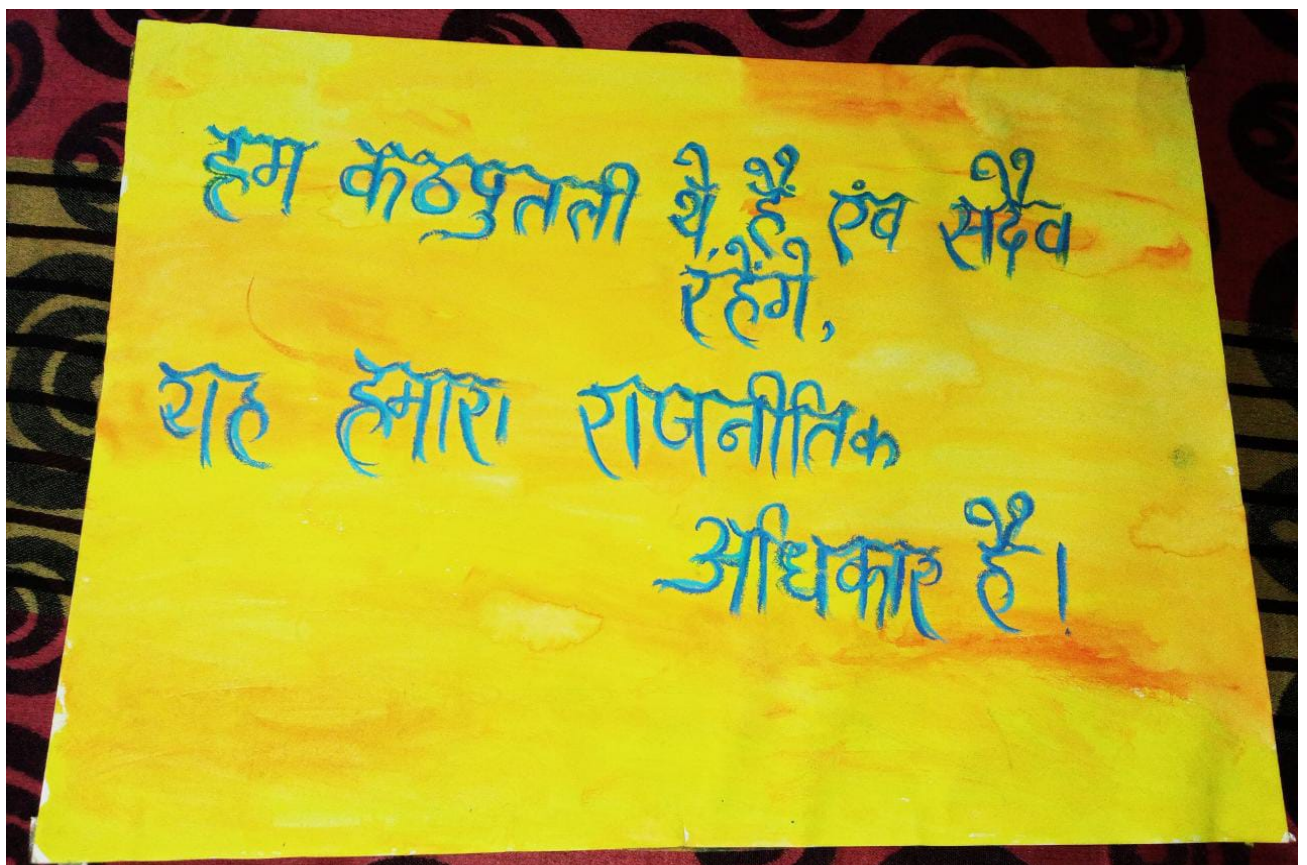 हम कठपुतली थे, हैं एंव सदैव
रहेंगे,
यह हमारा राजनीतिक
अधिकार है।